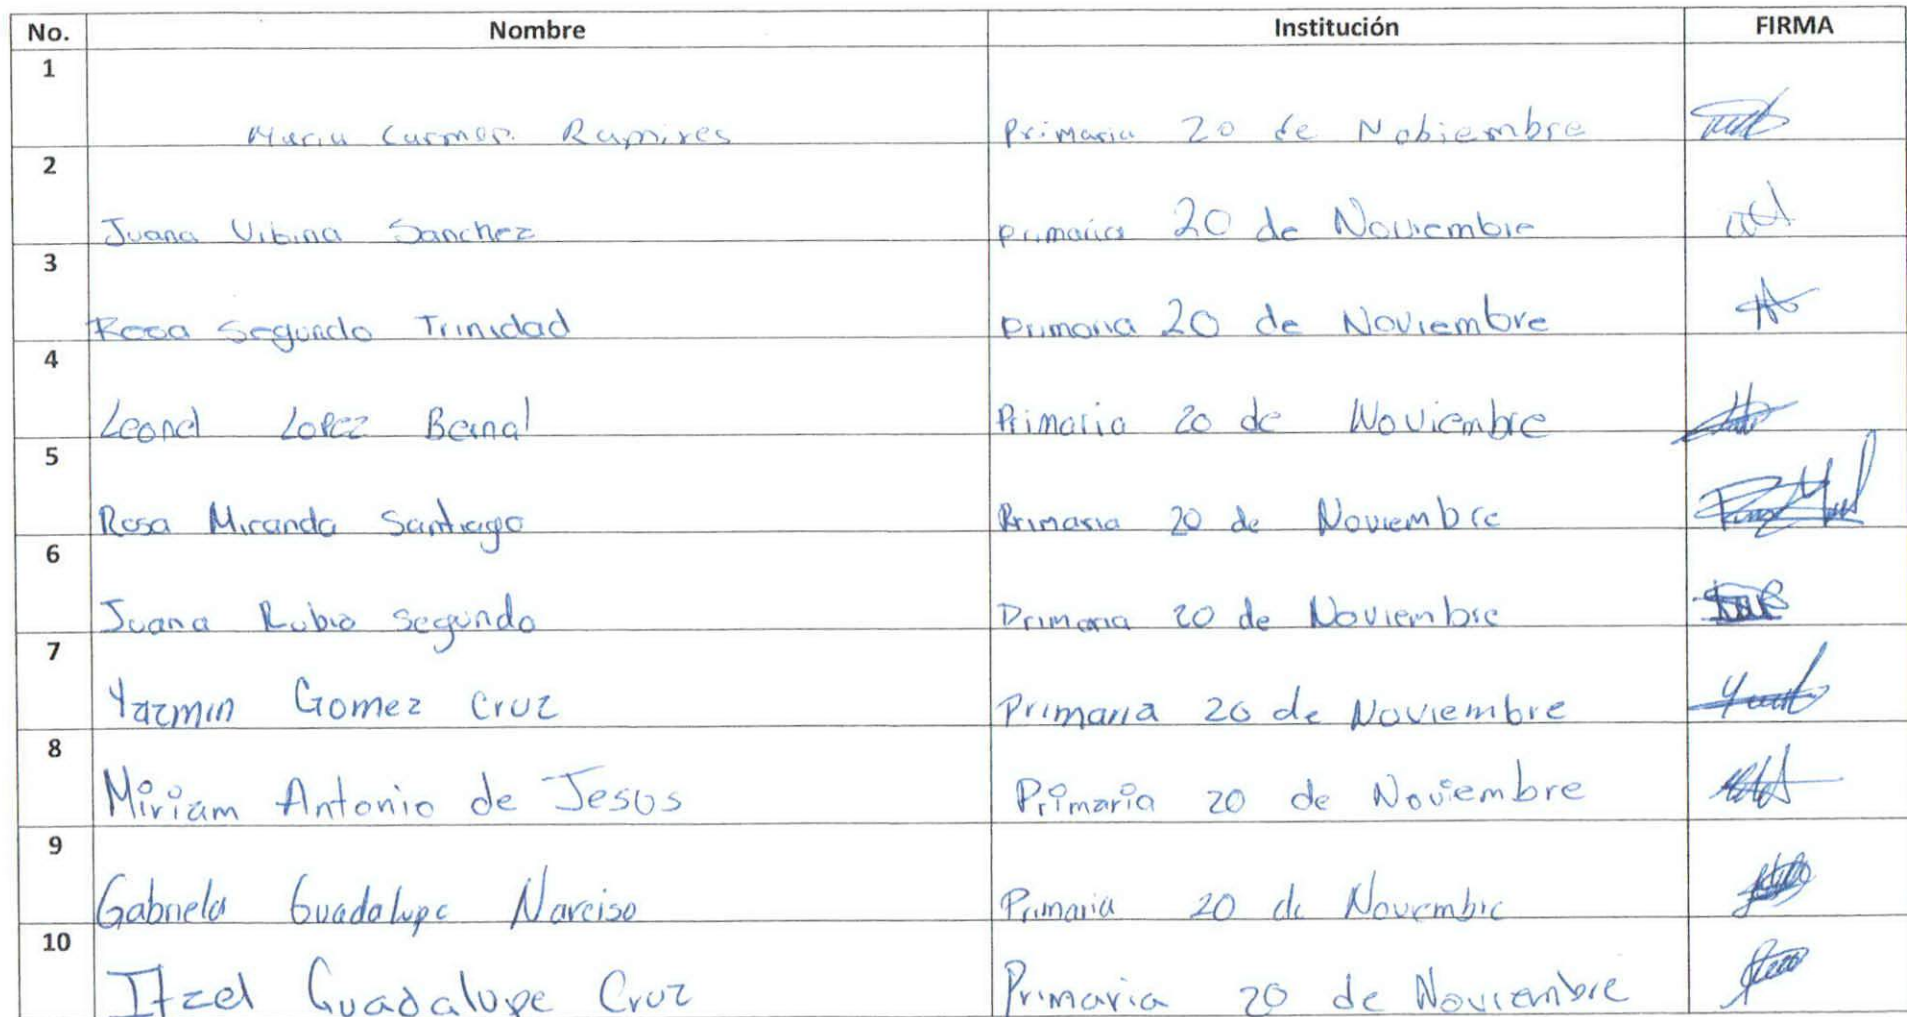 No. Nombre Institución FIRMA
1
Maria Carmen Ramires Primaria 20 de Nobiembre
2
Juana Vibina Sanchez primaria 20 de Noviembre
3
Rosa Segundo Trinidad primaria 20 de Noviembre
4
Leonel Lopez Bernal Primaria 20 de Noviembre
5
Rosa Miranda Santiago Primaria 20 de Noviembre
6
Juana Rubio Segundo Primaria 20 de Noviembre
7
Yazmin Gomez Cruz Primaria 20 de Noviembre
8
Miriam Antonio de Jesus Primaria 20 de Noviembre
9
Gabriela Guadalupe Narciso Primaria 20 de Noviembre
10
Itzel Guadalupe Cruz Primaria 20 de Noviembre